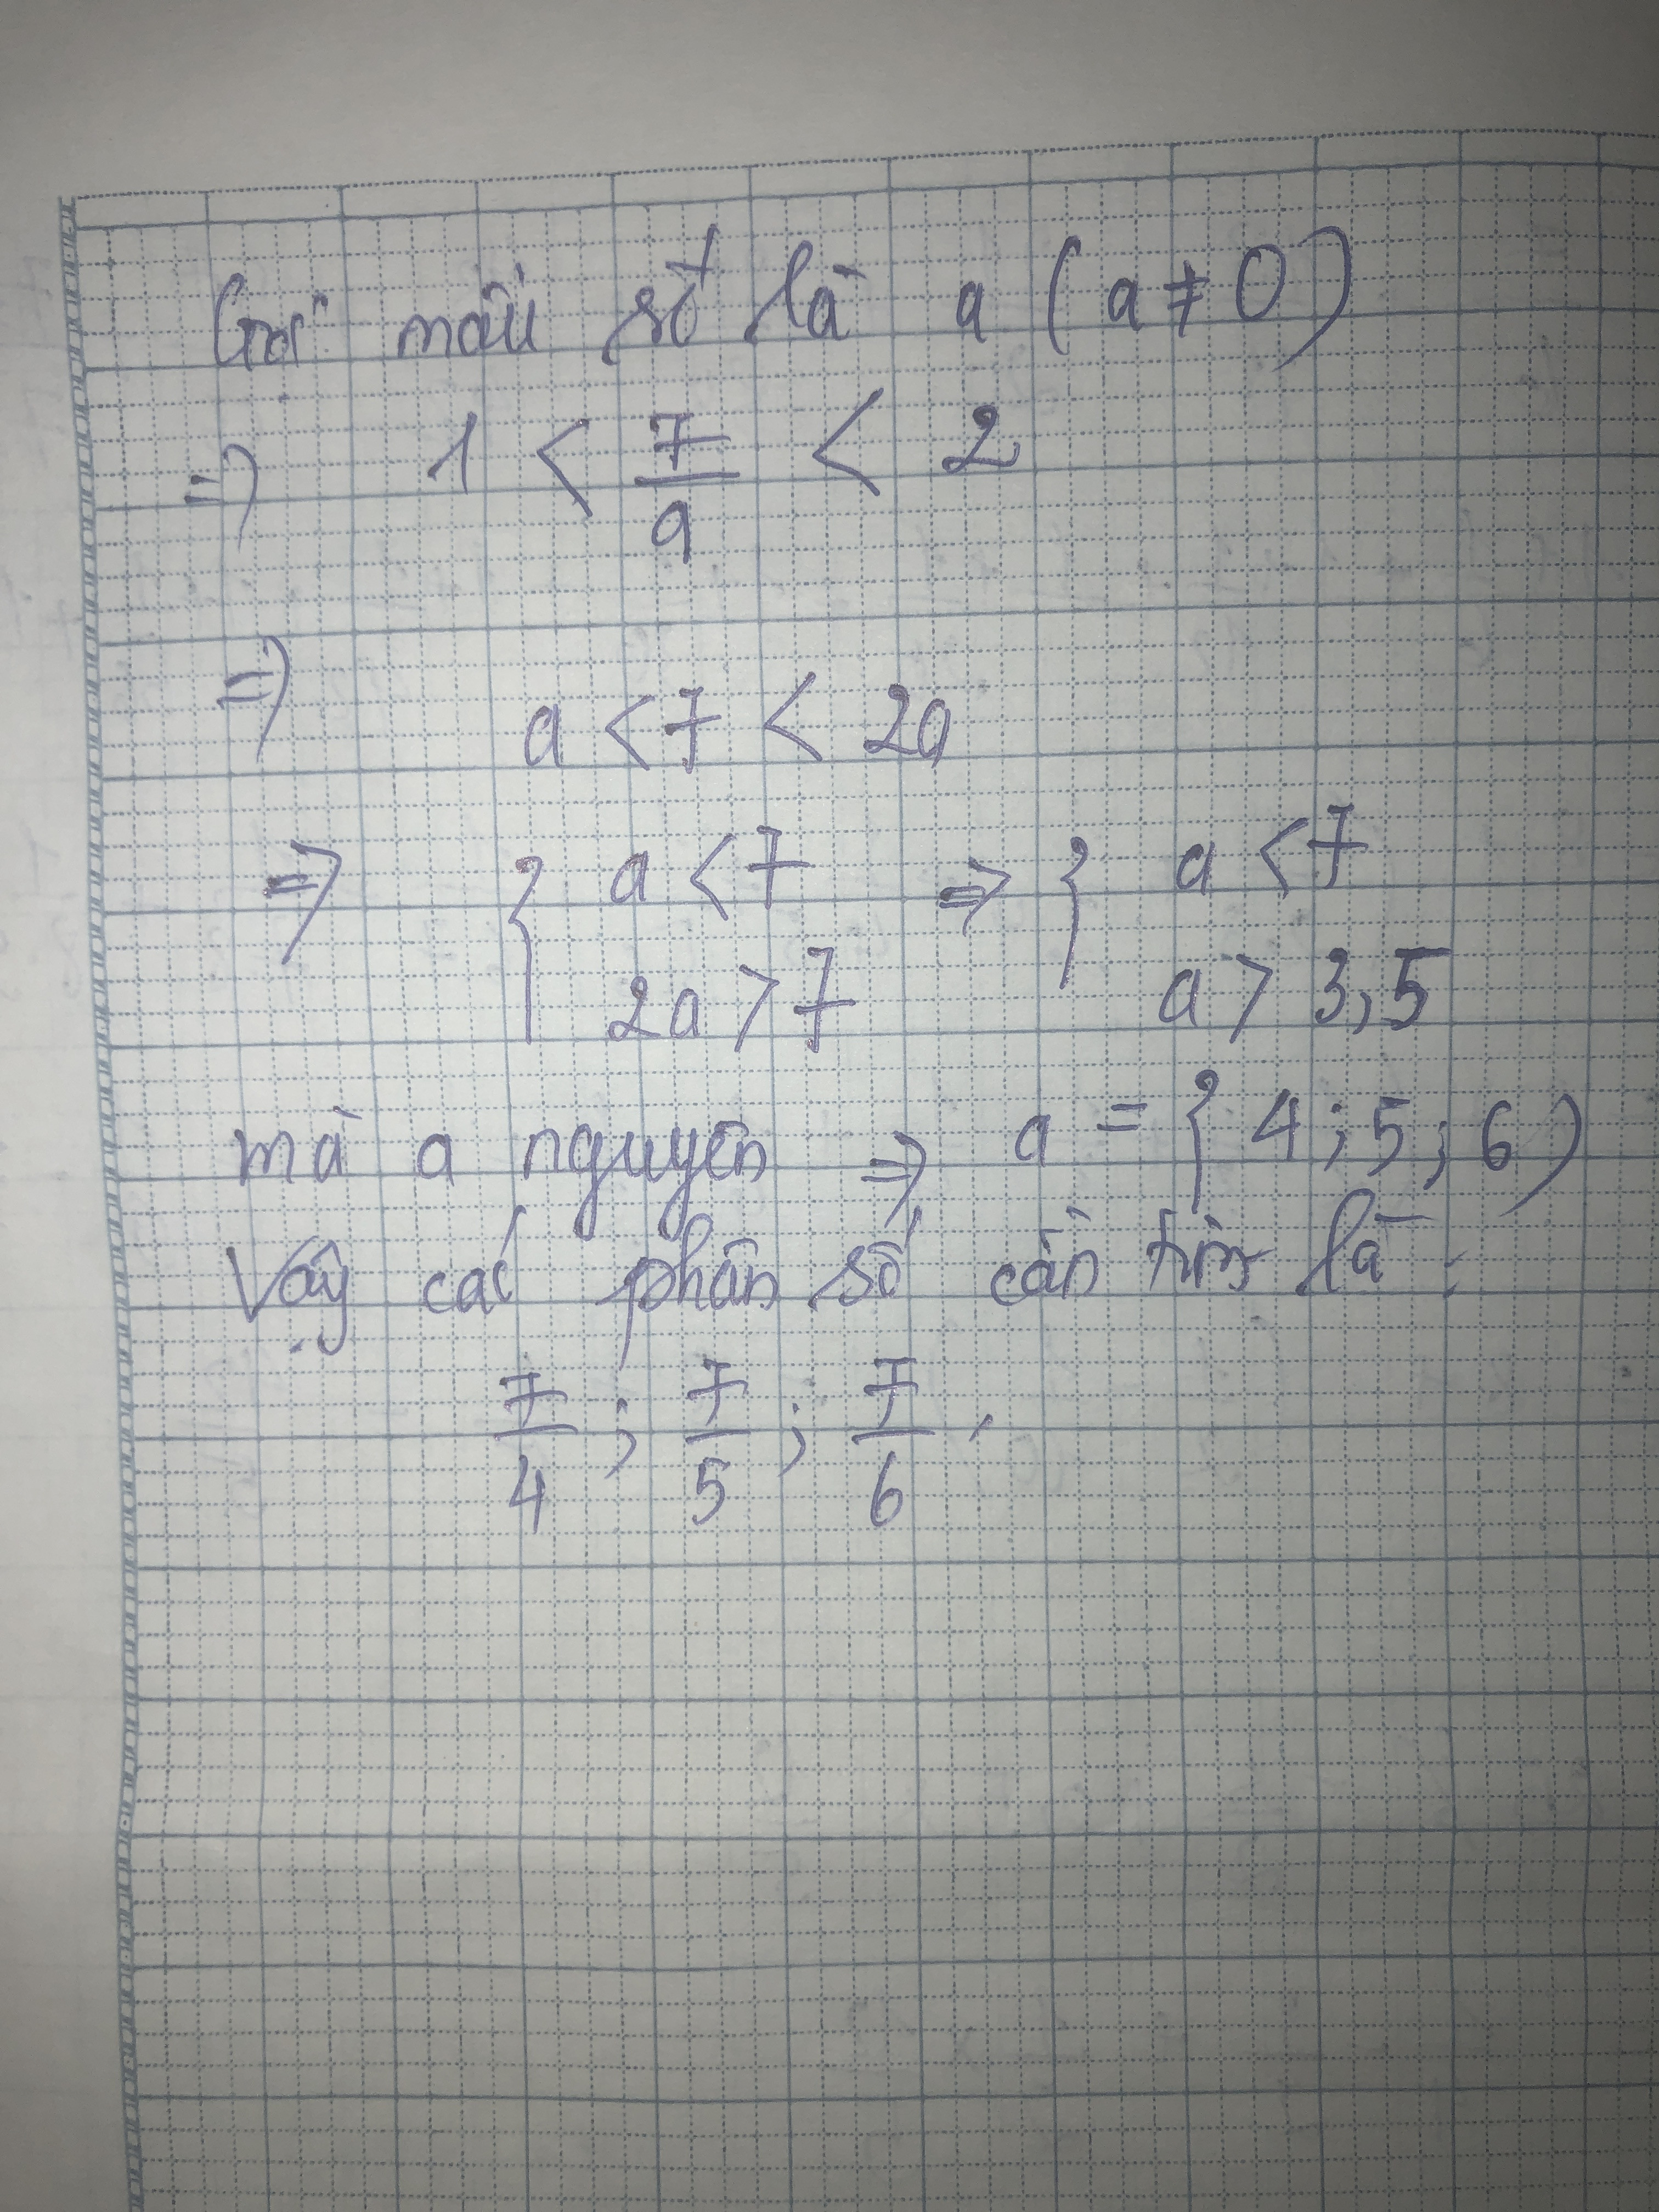 Gọi mẫu số là a ( a ≠ 0 )
=> 1 < 7/a < 2
=> a < 7 < 2a
=> { a < 7 => { a < 7
2a > 7 a > 3,5
mà a nguyên => a = { 4 ; 5 ; 6 )
Vậy các phân số cần tìm là :
7/4 ; 7/5 ; 7/6 .